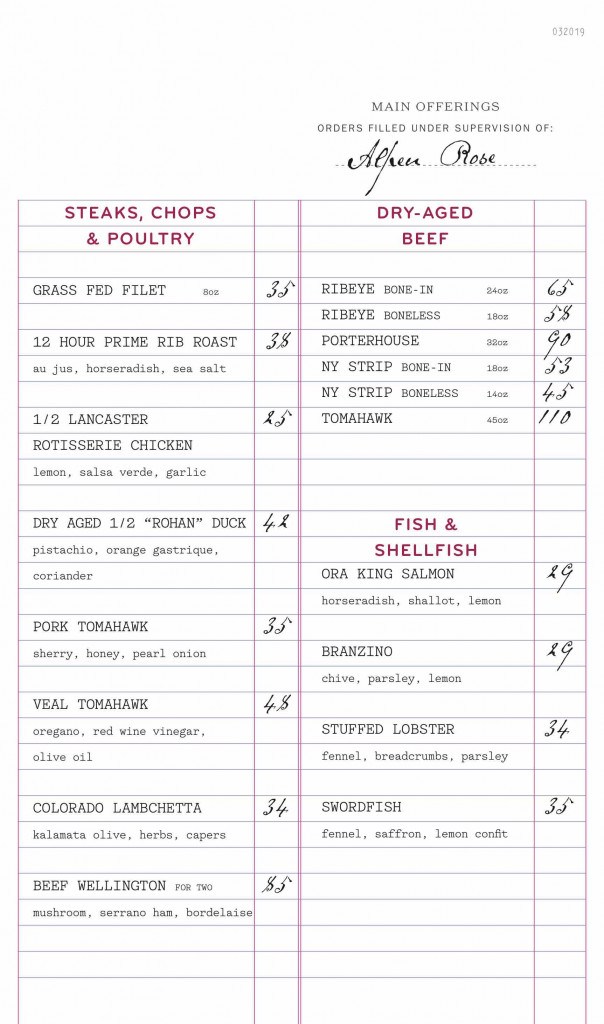 032019
MAIN OFFERINGS
ORDERS FILLED UNDER SUPERVISION OF:
Alpen Rose
STEAKS, CHOPS
& POULTRY
GRASS FED FILET 8oz 35
12 HOUR PRIME RIB ROAST 38
au jus, horseradish, sea salt
1/2 LANCASTER 25
ROTISSERIE CHICKEN
lemon, salsa verde, garlic
DRY AGED 1/2 “ROHAN” DUCK 42
pistachio, orange gastrique,
coriander
PORK TOMAHAWK 35
sherry, honey, pearl onion
VEAL TOMAHAWK 48
oregano, red wine vinegar,
olive oil
COLORADO LAMBCHETTA 34
kalamata olive, herbs, capers
BEEF WELLINGTON FOR TWO 85
mushroom, serrano ham, bordelaise
DRY-AGED
BEEF
RIBEYE BONE-IN 24oz 65
RIBEYE BONELESS 18oz 58
PORTERHOUSE 32oz 90
NY STRIP BONE-IN 18oz 53
NY STRIP BONELESS 14oz 45
TOMAHAWK 45oz 110
FISH &
SHELLFISH
ORA KING SALMON 29
horseradish, shallot, lemon
BRANZINO 29
chive, parsley, lemon
STUFFED LOBSTER 34
fennel, breadcrumbs, parsley
SWORDFISH 35
fennel, saffron, lemon confit